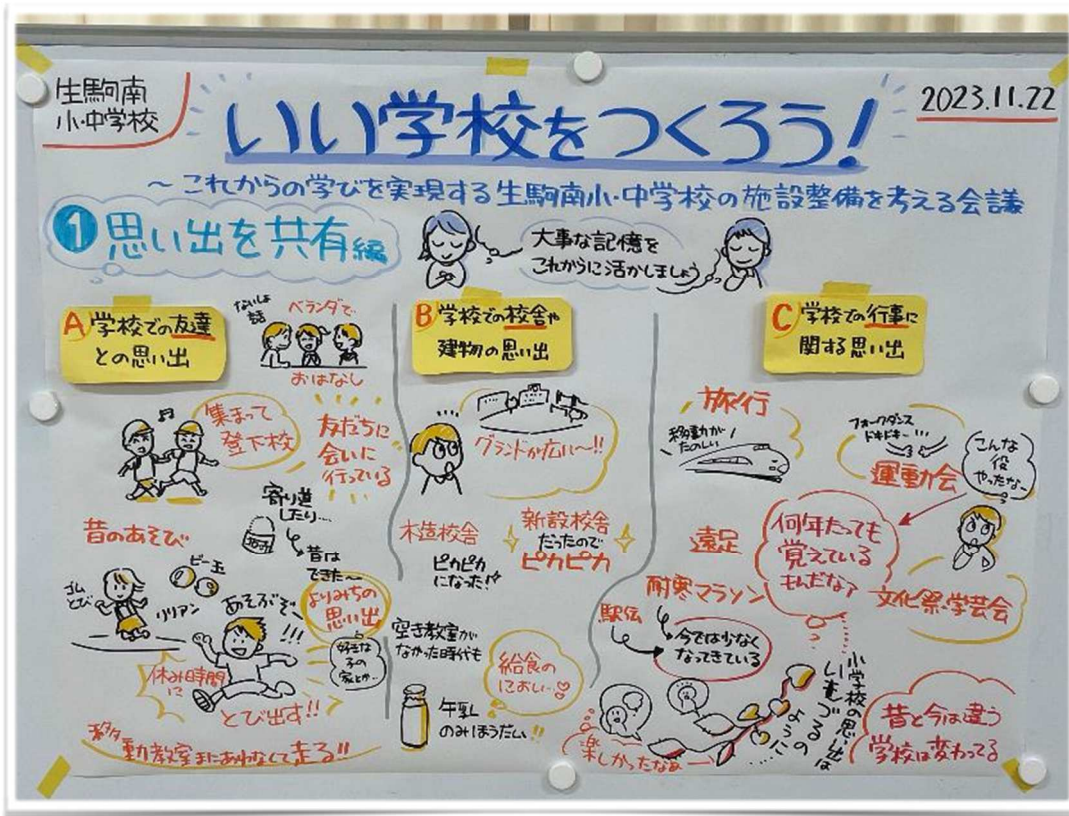 生駒南
小・中学校
2023.11.22
いい学校をつくろう!
～これからの学びを実現する生駒南小・中学校の施設整備を考える会議
① 思い出を共有編
大事な記憶を
これからに活かしましょう
A 学校での友達
との思い出
ないしょ
話
ベランダで
おはなし
集まって
登下校
友だちに
会いに
行っている
寄り道
したり…
昔は
できた～
よりみちの
思い出
好きな
子の
家とか…
昔のあそび
ゴム
とび
ビー玉
リリアン
あそぶぞ
!!!
休み時間
に
とび出す!!
移動教室まにあわなくて走る!!
B 学校での校舎や
建物の思い出
グランドが広い～!!
木造校舎
ピカピカ
になった!!
新設校舎
だったので
ピカピカ
空き教室が
なかった時代も
給食の
におい…♡
牛乳
のみほうだい!!
C 学校での行事に
関する思い出
旅行
移動が
たのしい
フォークダンス
ドキドキー…
運動会
こんな
役
やったな～
遠足
何年たっても
覚えている
もんだなぁ
文化祭・学芸会
耐寒マラソン
駅伝
今では少なく
なってきている
小学校の思い出は
いもづるの
ように
楽しかったなぁ
昔と今は違う
学校は変わってる